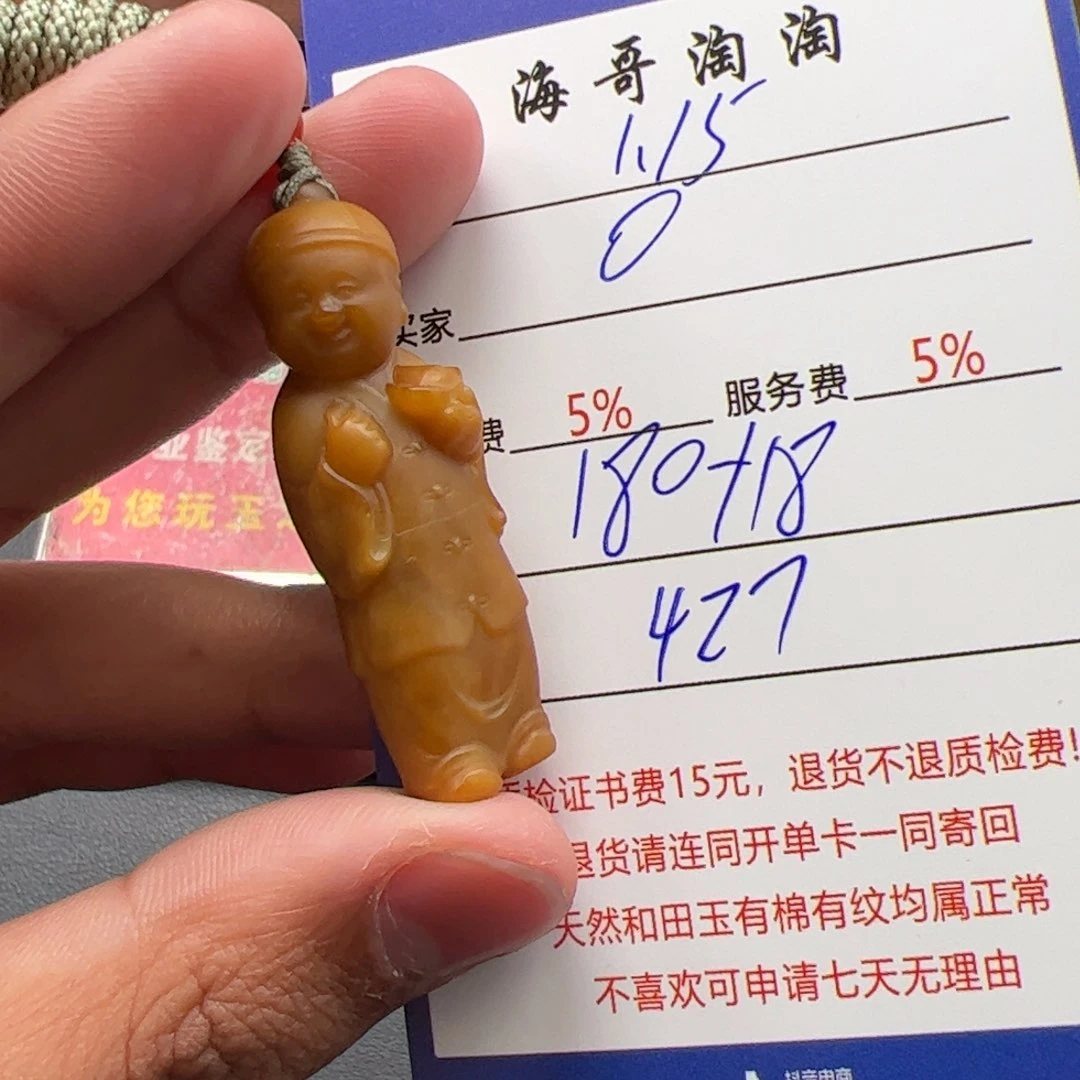 海哥淘淘
1.15
0
买家
费 5% 服务费 5%
180+18
427
质检证书费15元，退货不退质检费!
退货请连同开单卡一同寄回
天然和田玉有棉有纹均属正常
不喜欢可申请七天无理由
抖音电商
业鉴定
为您玩玉